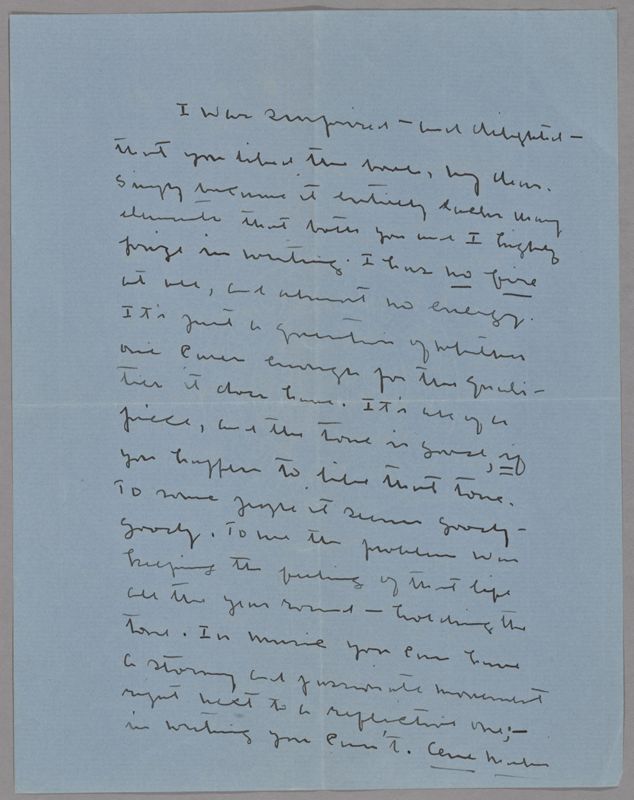 I was surprised — and delighted —
that you liked the book, my dear.
Simply because it entirely lacks many
elements that both you and I highly
prize in writing. I has no fire
at all, and almost no energy.
It's just a question of whether
one cares enough for the quali-
ties it does have. It's all of a
piece, and the tone is good, if
you happen to like that tone.
To some people it seems goody-
goody. To me the problem was
keeping the feeling of that life
all the year round — holding the
tone. In music you can have
a stormy and passionate movement
right next to a reflective one; —
in writing you can't.